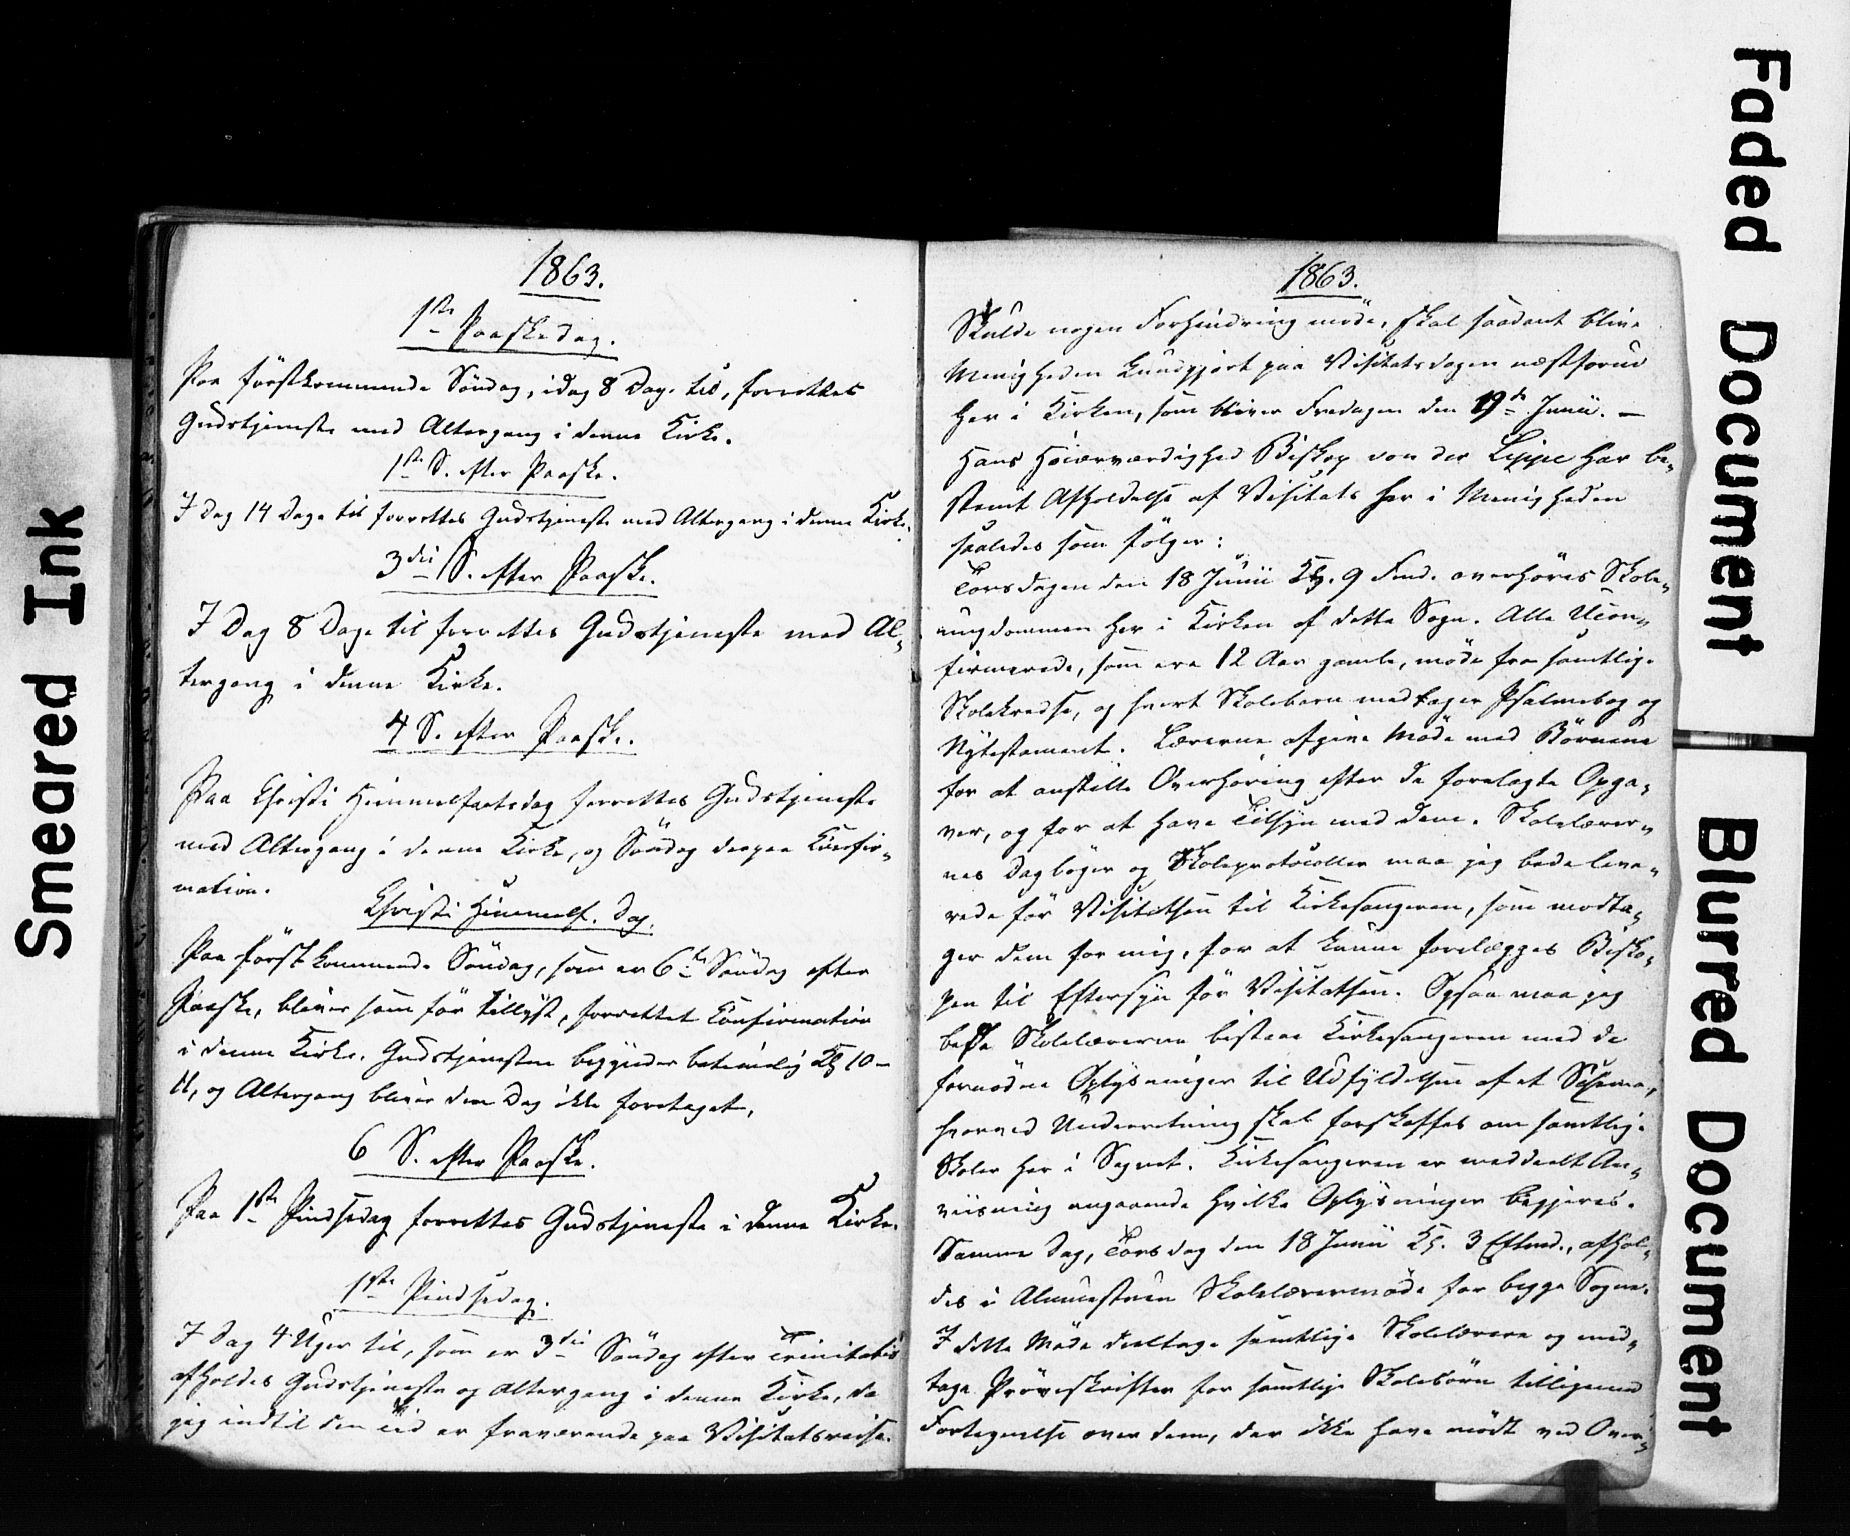 1863.
1ste Paaskedag.
Paa førstkommende Søndag, idag 8 Dage til, forrettes
Gudstjeneste med Altergang i denne Kirke.
1ste S. efter Paaske.
I Dag 14 Dage til forrettes Gudstjeneste med Altergang i denne Kirke.
3die S. efter Paaske.
I Dag 8 Dage til forrettes Gudstjeneste med Al-
tergang i denne Kirke.
4 S. efter Paaske.
Paa Christi Himmelfartsdag forrettes Gudstjeneste
med Altergang i denne Kirke, og Søndag derpaa Confir-
mation.
Christi Himmelf. Dag.
Paa førstkommende Søndag, som er 6te Søndag efter
Paaske, bliver som før tillyst, forrettet Confirmation
i denne Kirke. Gudstjenesten begynder betimelig Kl 10-
11, og Altergang bliver den Dag ikke foretaget.
6 S. efter Paaske.
Paa 1ste Pindsedag forrettes Gudstjeneste i denne Kirke.
1ste Pindsedag.
I Dag 4 Uger til, som er 3die Søndag efter Trinitatis
afholdes Gudstjeneste og Altergang i denne Kirke, da
jeg indtil den Tid er fraværende paa Visitatsreise.
1863.
Skulde nogen Forhindring møde, skal saadant blive
Menigheden kundgjort paa Visitatsdagen næstforud
her i Kirken, som bliver Fredagen den 19de Junii. —
Hans Høiærværdighed Biskop von der Lippe har be-
stemt Afholdelse af Visitats her i Menigheden
saaledes som følger:
Torsdagen den 18 Junii Kl. 9 Fmd. overhøres Skole-
ungdommen her i Kirken af dette Sogn. Alle Ucon-
firmerede, som ere 12 Aar gamle, møde fra samtlige
Skolekredse, og hvert Skolebarn medtager Psalmebog og
Nytestament. Lærerne afgive Møde med Børnene
for at anstille Overhøring efter de forelagte Opga-
ver, og for at have Tilsyn med dem. Skolelærer-
nes Dagbøger og Skoleprotocoller maa jeg bede leve-
rede før Visitatsen til Kirkesangeren, som modta-
ger dem for mig, for at kunne forelægges Bisko-
pen til Eftersyn før Visitatsen. Ogsaa maa jeg
bede Skolelærerne bistaae Kirkesangeren med de
fornødne Oplysninger til Udfyldelsen af et Schema,
hvorved Underretning skal forskaffes om samtlige
Skoler her i Sognet. Kirkesangeren er meddeelt An-
viisning angaaende hvilke Oplysninger begjæres.
Samme Dag, Torsdag den 18 Junii Kl. 3 Eftmd., afhol-
des i Almuestuen Skolelærermøde for begge Sogne.
I dette Møde deeltage samtlige Skolelærere og med-
tage Prøveskrifter for samtlige Skolebørn tilligemed
Fortegnelse over dem, der ikke have mødt ved Over-
Smeared Ink
Faded Document
Blurred Document